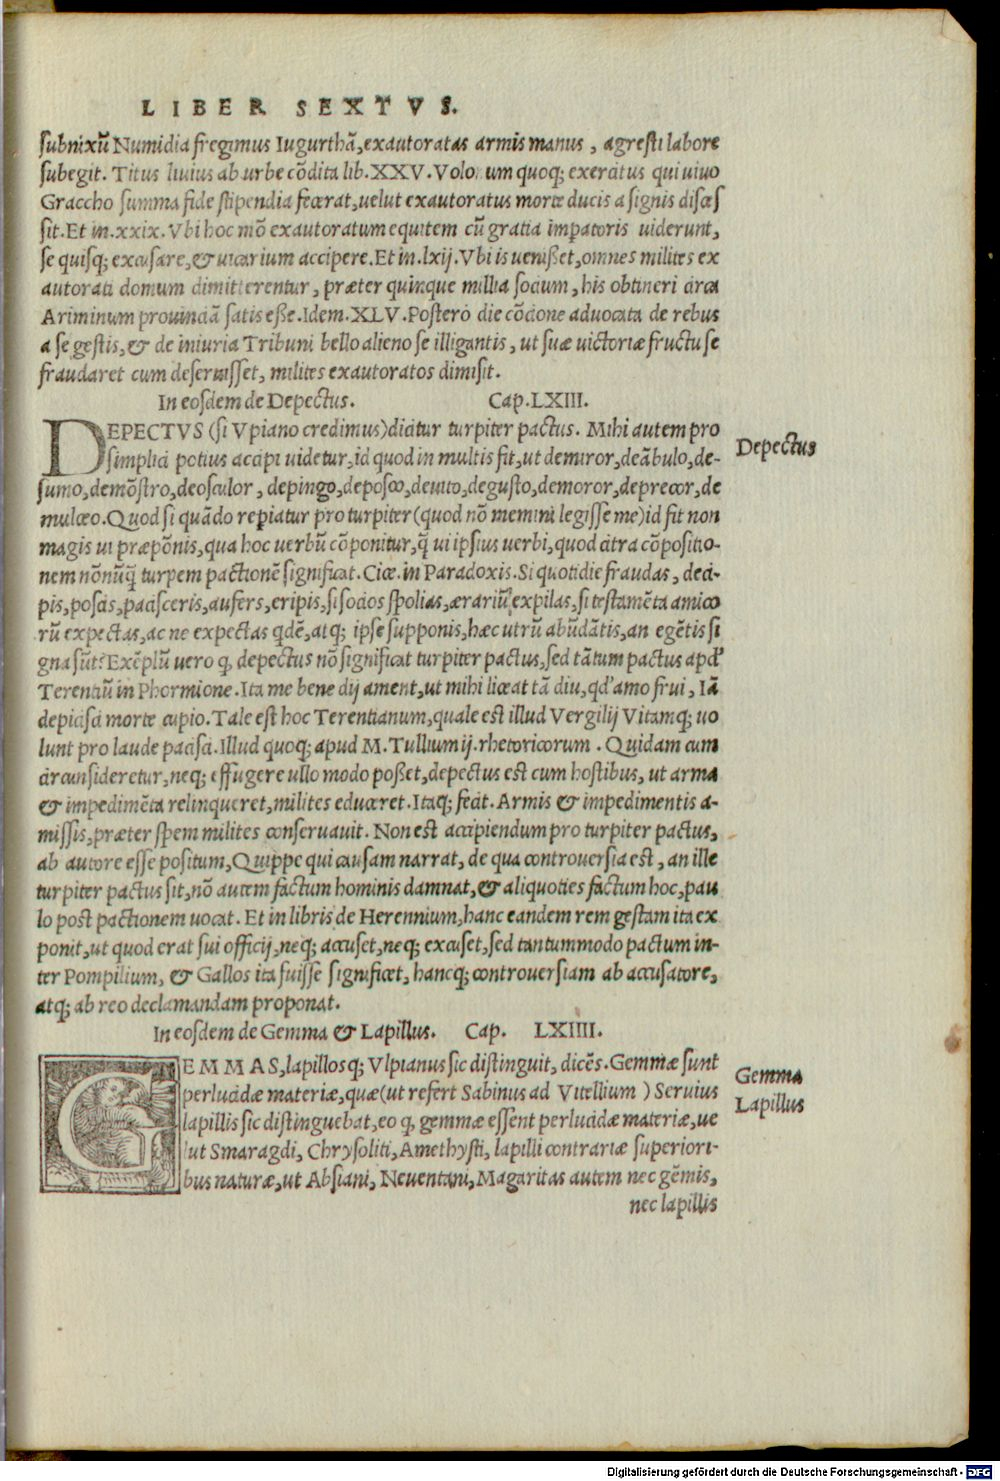 LIBER SEXTVS.
subnixũ Numidia fregimus Iugurthã, exautoratas armis manus, agresti labore
subegit. Titus liuius ab urbe cõdita lib. XXV. Volo um quoq; exercitus qui uiuo
Graccho summa fide stipendia fecerat, uelut exautoratus morte ducis a signis disces
sit. Et in. xxix. Vbi hoc mõ exautoratum equitem cũ gratia imperatoris uiderunt,
se quisq; excusare, & uicarium accipere. Et in. lxij. Vbi is uenisset, omnes milites ex
autorati domum dimitterentur, præter quinque millia socium, his obtineri circa
Ariminum prouinciã satis esse. Idem. XLV. Postero die cõcione aduocata de rebus
a se gestis, & de iniuria Tribuni bello alieno se illigantis, ut suæ victoriæ fructu se
fraudaret cum deseruisset, milites exautoratos dimisit.
In eosdem de Depectus. Cap. LXIII.
DEPECTVS (si Vpiano credimus) dicitur turpiter pactus. Mihi autem pro
Depectus
simplici potius accipi uidetur, id quod in multis fit, ut demiror, deãbulo, de-
sumo, demõstro, deosculor, depingo, deposco, deuito, degusto, demoror, deprecor, de
mulceo. Quod si quãdo repiatur pro turpiter (quod nõ memini legisse me) id fit non
magis ui præpõnis, qua hoc uerbũ cõponitur, q̃ ui ipsius uerbi, quod citra cõpositio-
nem nõnũq̃ turpem pactionẽ significat. Cice. in Paradoxis. Si quotidie fraudas, deci-
pis, poscis, pacisceris, aufers, eripis, si socios spolias, ærariũ expilas, si testamẽta amico
rũ expectas, ac ne expectas qdẽ, atq; ipse supponis, hæc utrũ abũdãtis, an egẽtis si
gna sũt? Exẽplũ uero q, depectus nõ significat turpiter pactus, sed tãtum pactus apd'
Terentiũ in Phormione. Ita me bene dij ament, ut mihi liceat tã diu, qd' amo frui, Iã
depicisci morte cupio. Tale est hoc Terentianum, quale est illud Vergilij Vitamq; uo
lunt pro laude pacisci. Illud quoq; apud M. Tullium ij. rhetoricorum. Quidam cum
circunsideretur, neq; effugere ullo modo posset, depectus est cum hostibus, ut arma
& impedimẽta relinqueret, milites educeret. Itaq; fecit. Armis & impedimentis a-
missis, præter spem milites conseruauit. Non est accipiendum pro turpiter pactus,
ab autore esse positum, Quippe qui causam narrat, de qua controuersia est, an ille
turpiter pactus sit, nõ autem factum hominis damnat, & aliquoties factum hoc, pau
lo post pactionem uocat. Et in libris de Herennium, hanc eandem rem gestam ita ex
ponit, ut quod erat sui officij, neq; accuset, neq; excuset, sed tantummodo pactum in-
ter Pompilium, & Gallos ita fuisse significet, hancq; controuersiam ab accusatore,
atq; ab reo declamandam proponat.
In eosdem de Gemma & Lapillus. Cap. LXIIII.
GEMMAS, lapillosq; Vlpianus sic distinguit, dicẽs. Gemmæ sunt
Gemma
perlucidæ materiæ, quæ (ut refert Sabinus ad Vitellium) Seruius
Lapillus
lapillis sic distinguebat, eo q, gemmæ essent perlucidæ materiæ, ue
lut Smaragdi, Chrysoliti, Amethysti, lapilli contrariæ superiori-
bus naturæ, ut Absiani, Neuentani, Magaritas autem nec gẽmis,
nec lapillis
Digitalisierung gefördert durch die Deutsche Forschungsgemeinschaft - DFG